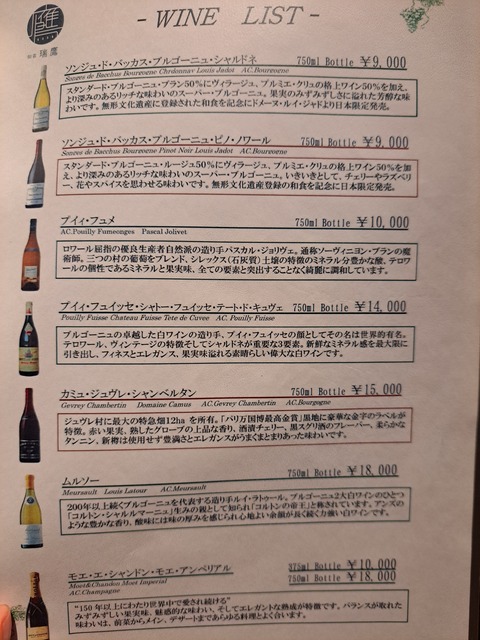 - WINE LIST -
瑞鷹
ソンジュ・ド・バッカス・ブルゴーニュ・シャルドネ 750ml Bottle ¥9,000
Sonzes de Bacchus Bouroeone Chrdonnay Louis Jadot AC.Bouroeone
スタンダード・ブルゴーニュ・ブラン50%にヴィラージュ、プルミエ・クリュの格上ワイン50%を加え、
より深みのあるリッチな味わいのスーパー・ブルゴーニュ。果実のみずみずしさに溢れた芳醇な味
わいです。無形文化遺産に登録された和食を記念にドメーヌ・ルイ・ジャドより日本限定発売。
ソンジュ・ド・バッカス・ブルゴーニュ・ピノ・ノワール 750ml Bottle ¥9,000
Sonzes de Bacchus Bouroeone Pinot Noir Louis Jadot AC.Bouroeone
スタンダード・ブルゴーニュ・ルージュ50%にヴィラージュ、プルミエ・クリュの格上ワイン50%を加
え、より深みのあるリッチな味わいのスーパー・ブルゴーニュ。いきいきとして、チェリーやラズベリ
ー、花やスパイスを思わせる味わいです。無形文化遺産登録の和食を記念に日本限定発売。
プイィ・フュメ 750ml Bottle ¥10,000
AC.Pouilly Fumeonges Pascal Jolivet
ロワール屈指の優良生産者自然派の造り手パスカル・ジョリヴェ。通称ソーヴィニヨン・ブランの魔
術師。三つの村の葡萄をブレンド、シレックス(石灰質)土壌の特徴のミネラル分豊かな酸、テロワ
ールの個性であるミネラルと果実味、全ての要素と突出することなく綺麗に調和しています。
プイィ・フュイッセ・シャトー・フュイッセ・テート・ド・キュヴェ 750ml Bottle ¥14,000
Pouilly Fuisse Chateau Fuisse Tete de Cuvee AC.Pouilly Fuisse
ブルゴーニュの卓越した白ワインの造り手、プイィ・フュイッセの顔としてその名は世界的有名。
テロワール、ヴィンテージの特徴そしてシャルドネが重要な3要素。新鮮なミネラル感を最大限に
引き出し、フィネスとエレガンス、果実味溢れる素晴らしい偉大な白ワインです。
カミュ・ジュヴレ・シャンベルタン 750ml Bottle ¥15,000
Gevrey Chambertin Domaine Camus AC.Gevrey Chambertin AC.Bourgogne
ジュヴレ村に最大の特急畑12ha を所有。「パリ万国博最高金賞」黒地に豪華な金字のラベルが
特徴。赤い果実、熟したグローブの上品な香り、酒漬チェリー、黒スグリ酒のフレーバー、柔らかな
タンニン、新樽は使用せず豊満さとエレガンスがうまくまとまりあった味わいです。
ムルソー 750ml Bottle ¥18,000
Meursault Louis Latour AC.Meursault
200年以上続くブルゴーニュを代表する造り手ルイ・ラトゥール。ブルゴーニュ2大白ワインのひとつ
「コルトン・シャルルマーニュ」生みの親として知られ「コルトンの帝王」と称されています。アンズの
ような豊かな香り、酸味には味の厚みを感じられ心地よい余韻が長く続く力強い白ワインです。
モエ・エ・シャンドン・モエ・アンペリアル 375ml Bottle ¥10,000
750ml Bottle ¥18,000
Moet&Chandon Moet Imperial
AC.Champagne
"150 年以上にわたり世界中で愛され続ける"
輝きのある豊かな果実味、魅惑的な味わい、そしてエレガントな熟成が特徴です。バランスが取れた
味わいは、前菜からメイン、デザートまであらゆる料理とよく合います。